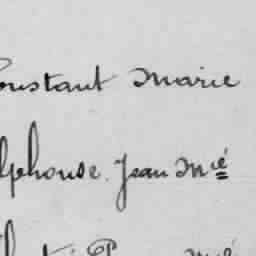 Constant Marie
Alphonse. Jean Mié